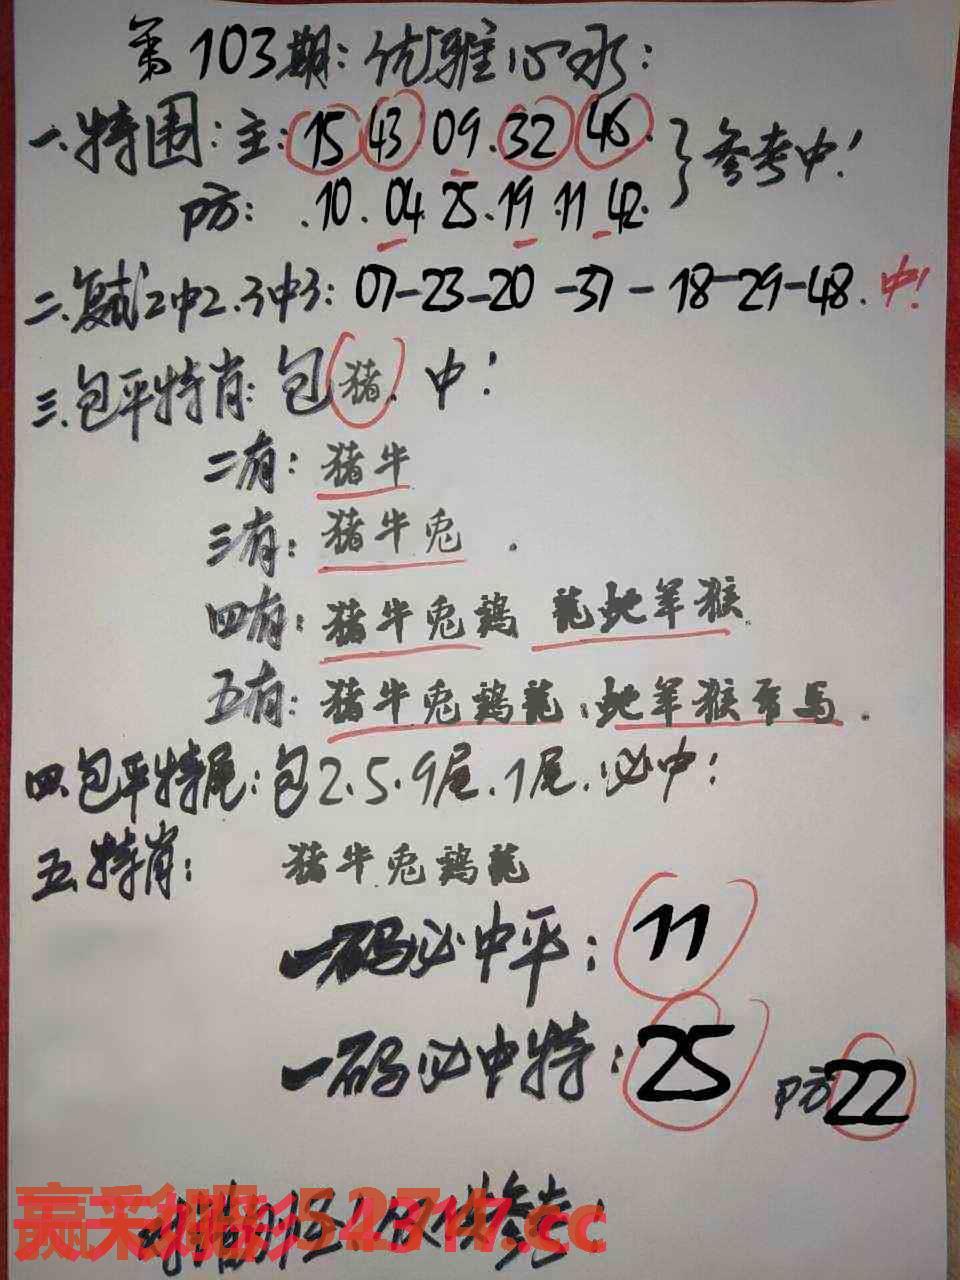 第103期：优雅心水：
一.特围：主：15 43 09.32 46. 参考中！
防：.10.04 25.19 11 42.
二.复试2中2.3中3：07-23-20-37-18-29-48.中！
三.包平特肖：包猪.中！
二有：猪牛
三有：猪牛兎.
四有：猪牛兎鸡 龍蛇羊猴
五有：猪牛兎鸡龍：蛇羊猴 马.
四.包平特尾：包2.5.9尾.1尾.必中！
五.特肖：猪牛兎鸡龍
一码必中平：11
一码必中特：25 防22
赢彩 52717.cc
参考